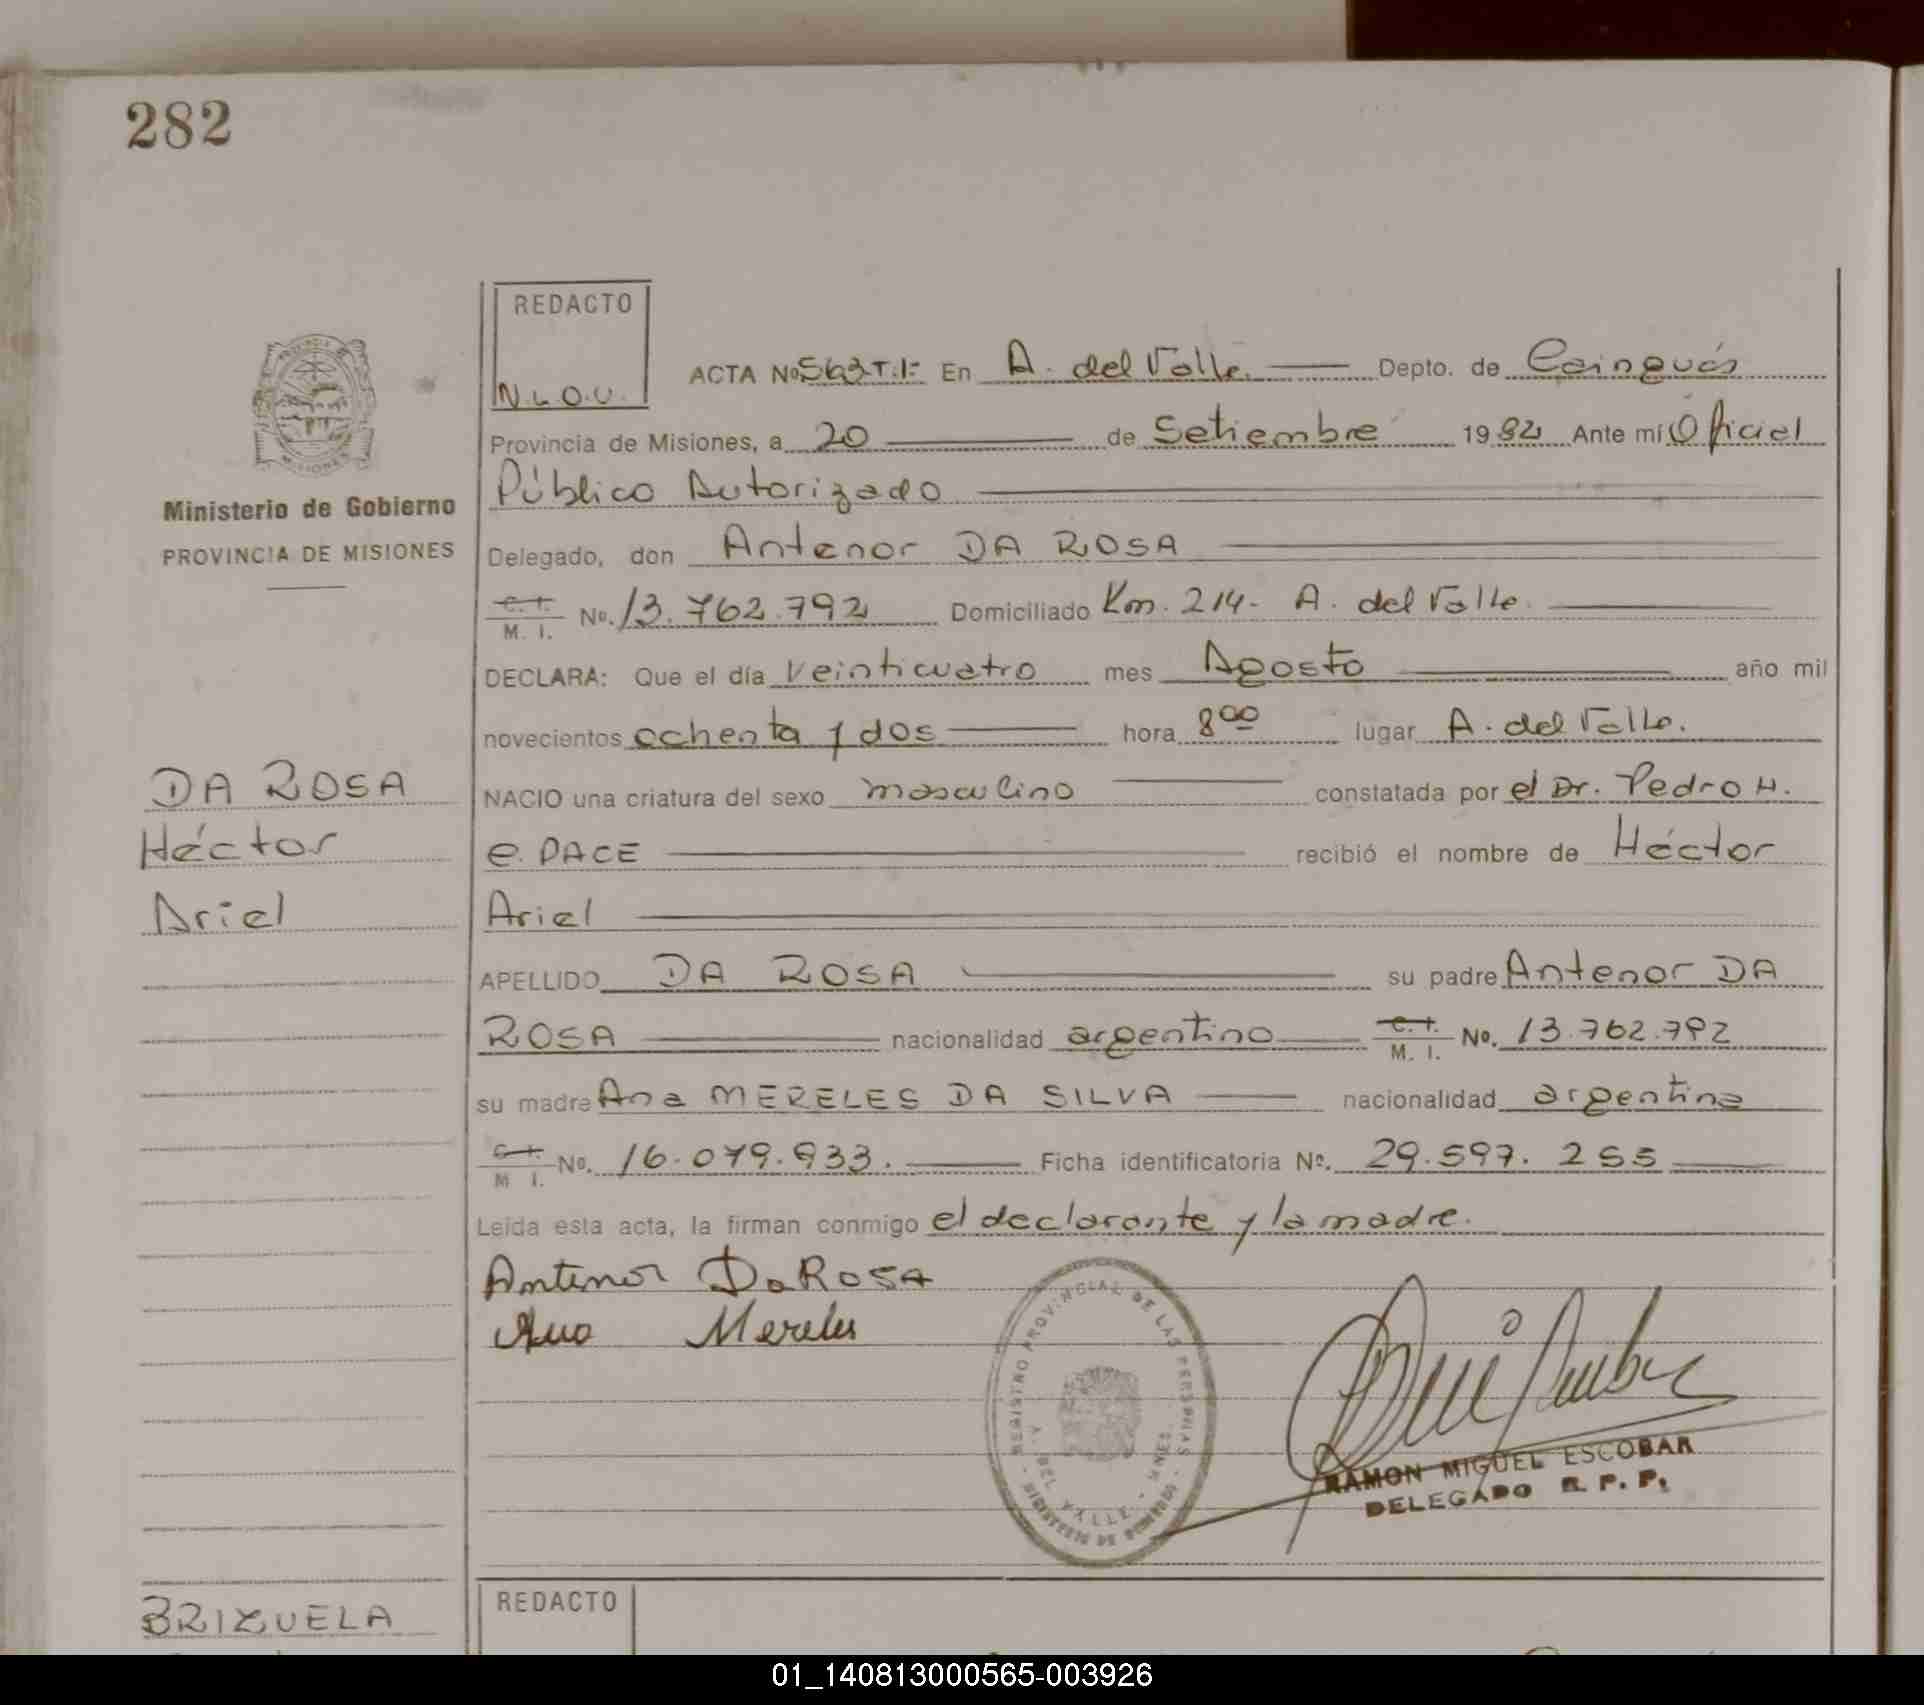 282
REDACTO
N.L.O.V.
ACTA No 563 T.I- En A. del Valle. Depto. de Cainguás
Provincia de Misiones, a 20 de Setiembre 1982 Ante mí Oficial
Público Autorizado
Delegado, don Antenor DA ROSA
C. I.
M. I. No. 13.762.792 Domiciliado Km. 214- A. del Valle.
DECLARA: Que el día veinticuatro mes Agosto año mil
novecientos ochenta y dos hora 8 00 lugar A. del Valle.
NACIO una criatura del sexo masculino constatada por el Dr. Pedro H.
e. PACE recibió el nombre de Héctor
Ariel
APELLIDO DA ROSA su padre Antenor DA
ROSA nacionalidad argentino C. I. M. I. No. 13.762.792
su madre Ana MERELES DA SILVA nacionalidad argentina
C. I.
M I. No. 16.079.933. Ficha identificatoria Nº. 29.597.255
Leída esta acta, la firman conmigo el declarante y la madre.
Antenor Da ROSA
Ana Mereles
REGISTRO PROVINCIAL DE LAS PERSONAS
DEL VALLE
MINISTERIO DE GOBIERNO
RAMON MIGUEL ESCOBAR
DELEGADO R. P. P.
Ministerio de Gobierno
PROVINCIA DE MISIONES
MISIONES
DA ROSA
Héctor
Ariel
BRIZUELA
REDACTO
01_140813000565-003926